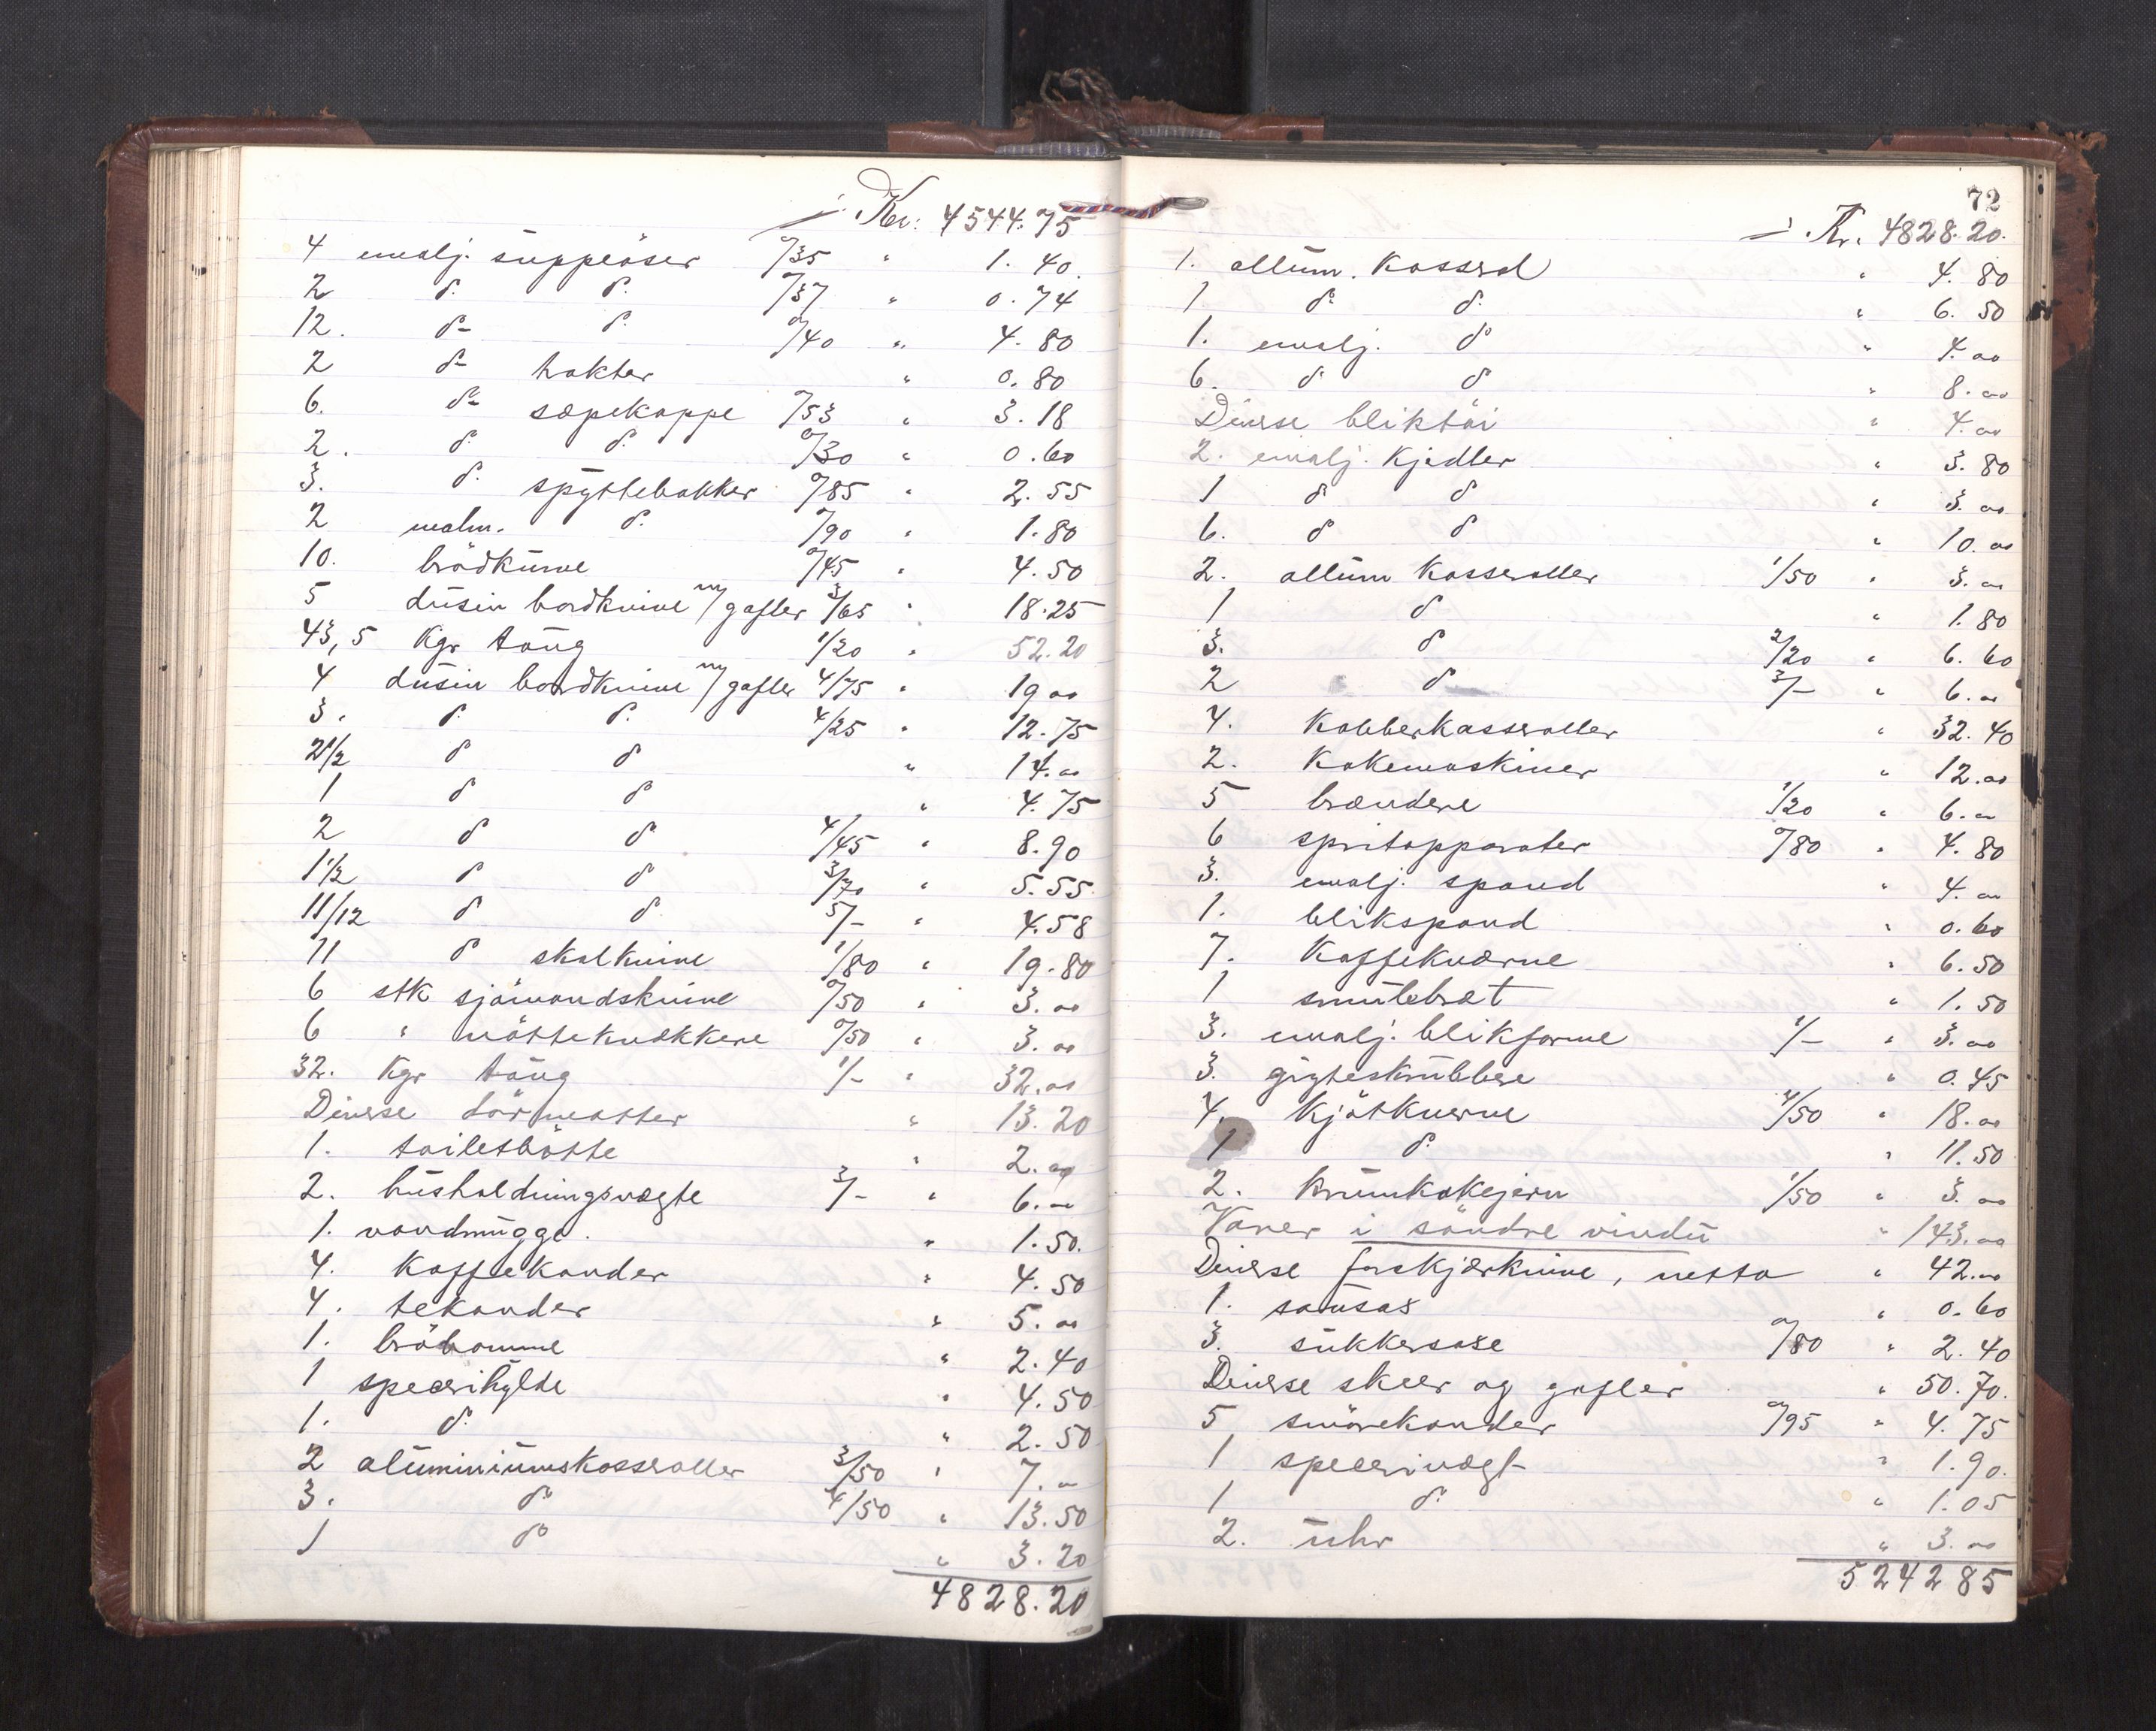 Kr. 4544.75
4 emalj. suppeöser 0/35 " 1.40.
2 do. do. 0/37 " 0.74
12. do. do. 0/40 " 4.80
2 do. trakter " 0.80
6. do. sæpekoppe 0/53 " 3.18
2. do. do. 0/30 " 0.60
3. do. spyttebakker 0/85 " 2.55
2 malm. do. 0/90 " 1.80
10. brödkurve 0/45 " 4.50
5 dusin bordknive m/gafler 3/65 " 18.25
43,5 Kgr taug 1/20 " 52.20
4 dusin bordknive m/gafler 4/75 " 19.00
3. do. do. 4/25 " 12.75
2 1/2 do do " 14.00
1 do do " 4.75
2 do do 4/45 " 8.90
1 1/2 do do 3/70 " 5.55
11/12 do do 5/- " 4.58
11 do skalknive 1/80 " 19.80
6 stk sjömandsknive 0/50 " 3.00
6 " nötteknækkere 0/50 " 3.00
32. Kgr taug 1/- " 32.00
Diverse dörmatter " 13.20
1. toiletbötte " 2.00
2. husholdningsvægte 3/- " 6.00
1. vandmugge. " 1.50.
4. Kaffekander " 4.50
4. tekander " 5.00
1. bröbomme " 2.40
1 specerihylde " 4.50
1. do. " 2.50
2 aluminiumskasseroller 3/50 " 7.00
3. do 4/50 " 13.50
1 do " 3.20
4828.20
72
Kr. 4828.20.
1. allum. Kasserol " 4.80
1 do do. " 6.50
1. emalj. do " 4.00
6. do do " 8.00
Diverse bliktöi " 4.00
2. emalj. Kjedler " 3.80
1 do do " 3.00
6. do do " 10.00
2. allum Kasseroller 1/50 " 3.00
1 do " 1.80
3. do 2/20 " 6.60
2 do 3/- " 6.00
4. Kobberkasseroller " 32.40
2. Kokemaskiner " 12.00
5 brændere 1/20 " 6.00
6 spritapparater 0/80 " 4.80
3. emalj. spand " 4.00
1. blikspand " 0.60
7. Kaffekværne " 6.50
1 smulebræt " 1.50
3. emalj. blikforme 1/- " 3.00
3. gryteskrubbere " 0.45
4. Kjötkverne 4/50 " 18.00
1 do. " 11.50
2. Krumkakejern 1/50 " 3.00
Varer i söndre vindu " 143.00
Diverse forskjærknive, netto " 42.00
1. sausøs " 0.60
3. sukkerøse 0/80 " 2.40
Diverse skeer og gafler " 50.70.
5 smörekander 0/95 " 4.75
1 specerivægt " 1.90.
1 do. " 1.05
2. uhr " 3.00
5242 85